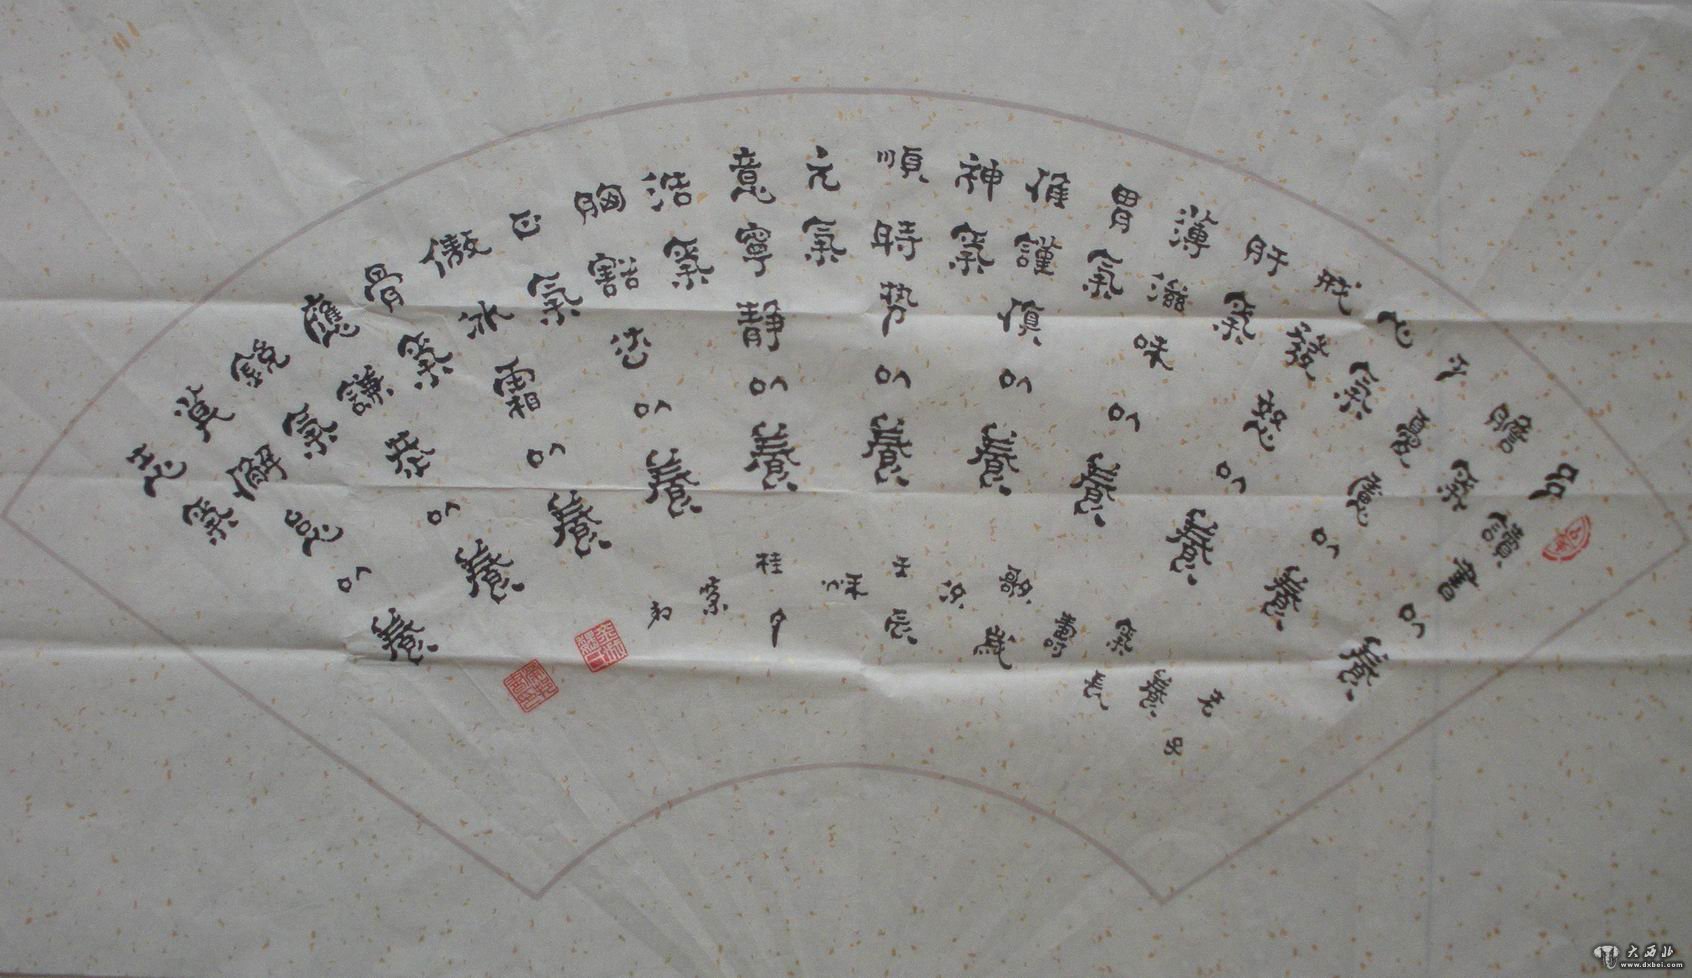 多讀書以養
膽氣
少憂慮以養
心氣
戒發怒以養
肝氣
薄滋味以養
胃氣
惟謹慎以養
神氣
順時勢以養
元氣
意寧靜以養
浩氣
胸豁達以養
正氣
傲冰霜以養
骨氣
應謙恭以養
銳氣
莫懈怠以養
志氣
養
氣
長
壽
歌
歲
次
壬辰
秋
桂月
大西北
www.dxbei.com